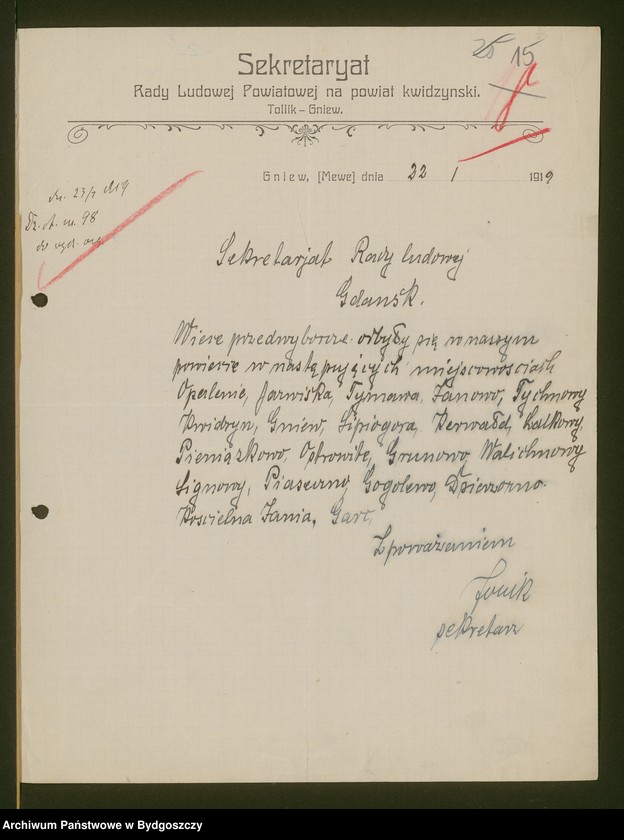 25 15
Sekretaryat
Rady Ludowej Powiatowej na powiat kwidzynski.
Tollik – Gniew.
Gniew, [Mewe] dnia 22 / 1 1919
dn. 23/1 1919
Dz. st. nr. 98
do wyd. org.
Sekretarjat Rady ludowej
Gdańsk.
Wiece przedwyborcze odbyły się w naszym
powiecie w następujących miejscowościach
Opalenie, Jaźwiska, Tymawa, Janowo, Tychnowy
Kwidzyn, Gniew, Lipiagora, Kerwałd, Lalkowy,
Pieniążkowo, Ostrowite, Grunowo, Walichnowy
Lignowy, Piaseczno, Gogolewo, Dzierżązno
Kościelna Jania, Garc,
Z poważaniem
sekretarz
Archiwum Państwowe w Bydgoszczy